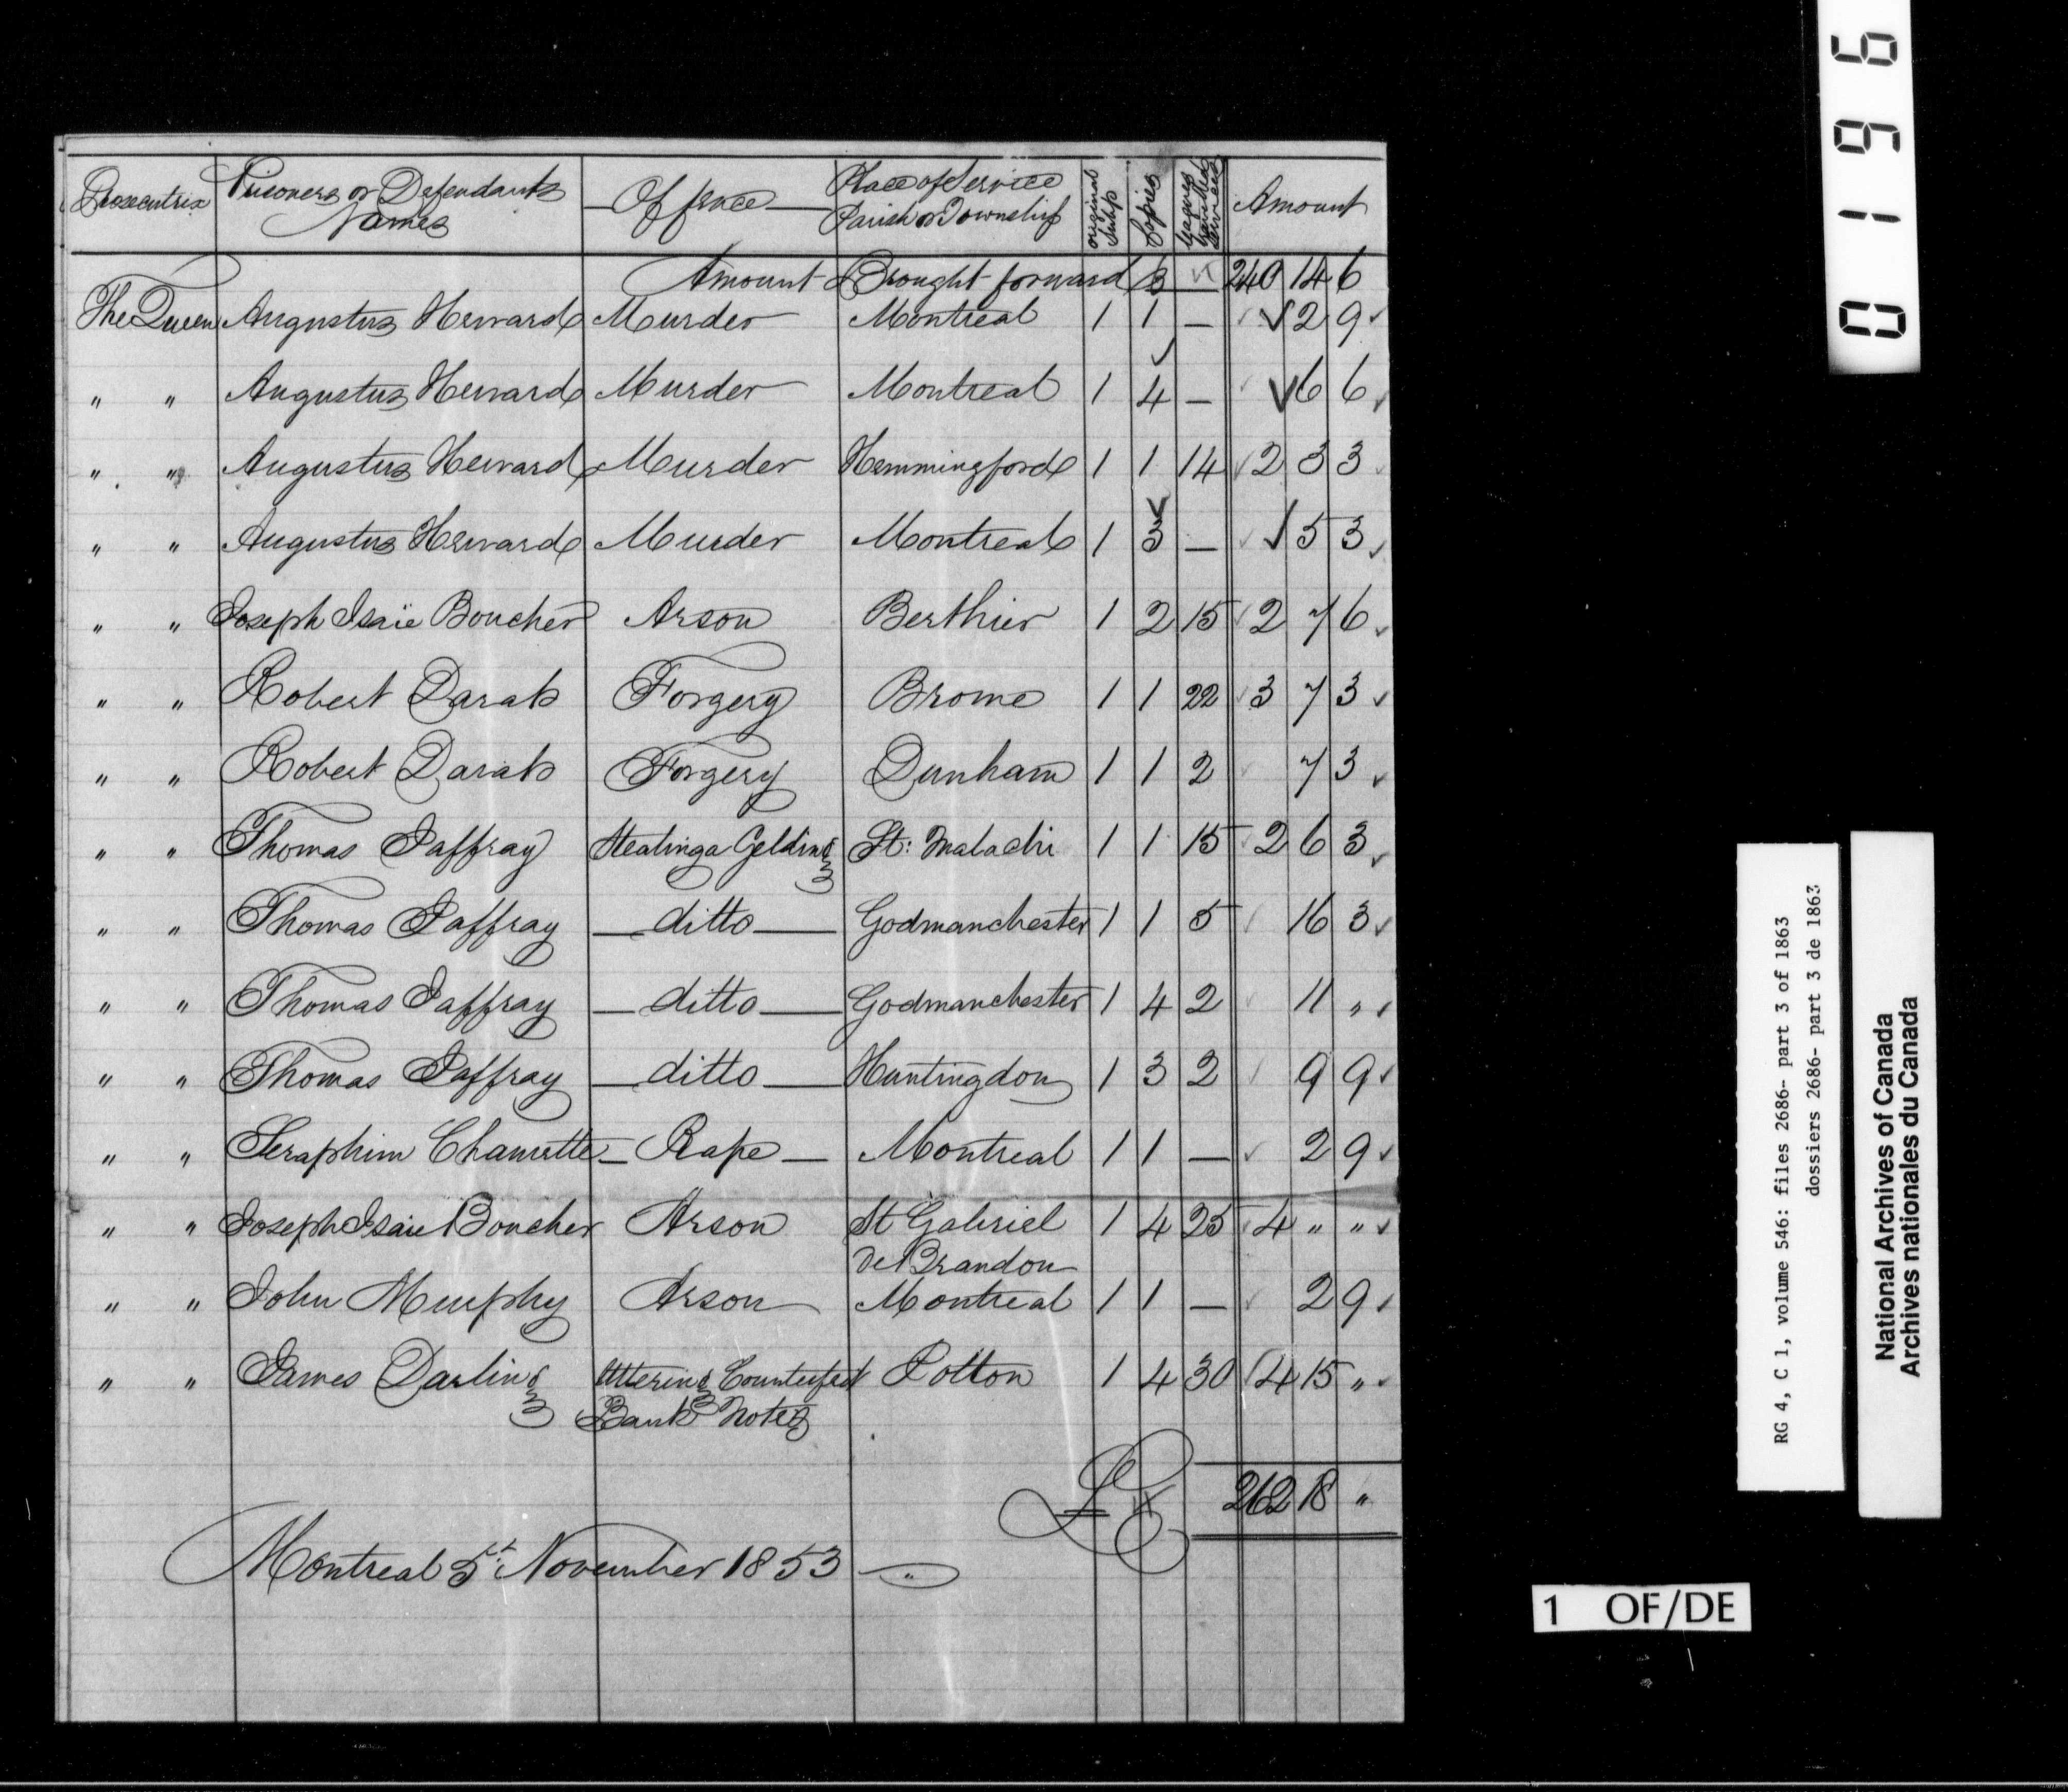 0196
Prosecutrix Prisoners or Defendants Names Offence Place of Service Parish or Township original Subp Copies leagues travelled Services Amount
Amount Brought forward £ 240 14 6
The Queen Augustus Heward Murder Montreal 1 1 — 2 9
" " Augustus Heward Murder Montreal 1 4 — 6 6
" " Augustus Heward Murder Hemmingford 1 1 14 2 3 3
" " Augustus Heward Murder Montreal 1 3 — 5 3
" " Joseph Isaïe Boucher Arson Berthier 1 2 15 2 7 6
" " Robert Darah Forgery Brome 1 1 22 3 7 3
" " Robert Darah Forgery Dunham 1 1 2 7 3
" " Thomas Jaffray Stealing a Gelding St: Malachi 1 1 15 2 6 3
" " Thomas Jaffray — ditto — Godmanchester 1 1 5 16 3
" " Thomas Jaffray — ditto — Godmanchester 1 4 2 11 "
" " Thomas Jaffray — ditto — Huntingdon 1 3 2 9 9
" " Seraphim Chamette — Rape — Montreal 1 1 — 2 9
" " Joseph Isaïe Boucher Arson St Gabriel 1 4 25 4 " "
de Brandon
" " John Murphy Arson Montreal 1 1 — 2 9
" " James Darling Uttering Counterfeit Potton 1 4 30 4 15 "
Bank Notes
£ 262 18 "
Montreal 5th November 1853
RG 4, C 1, volume 546: files 2686- part 3 of 1863
dossiers 2686- part 3 de 1863
National Archives of Canada
Archives nationales du Canada
1 OF/DE